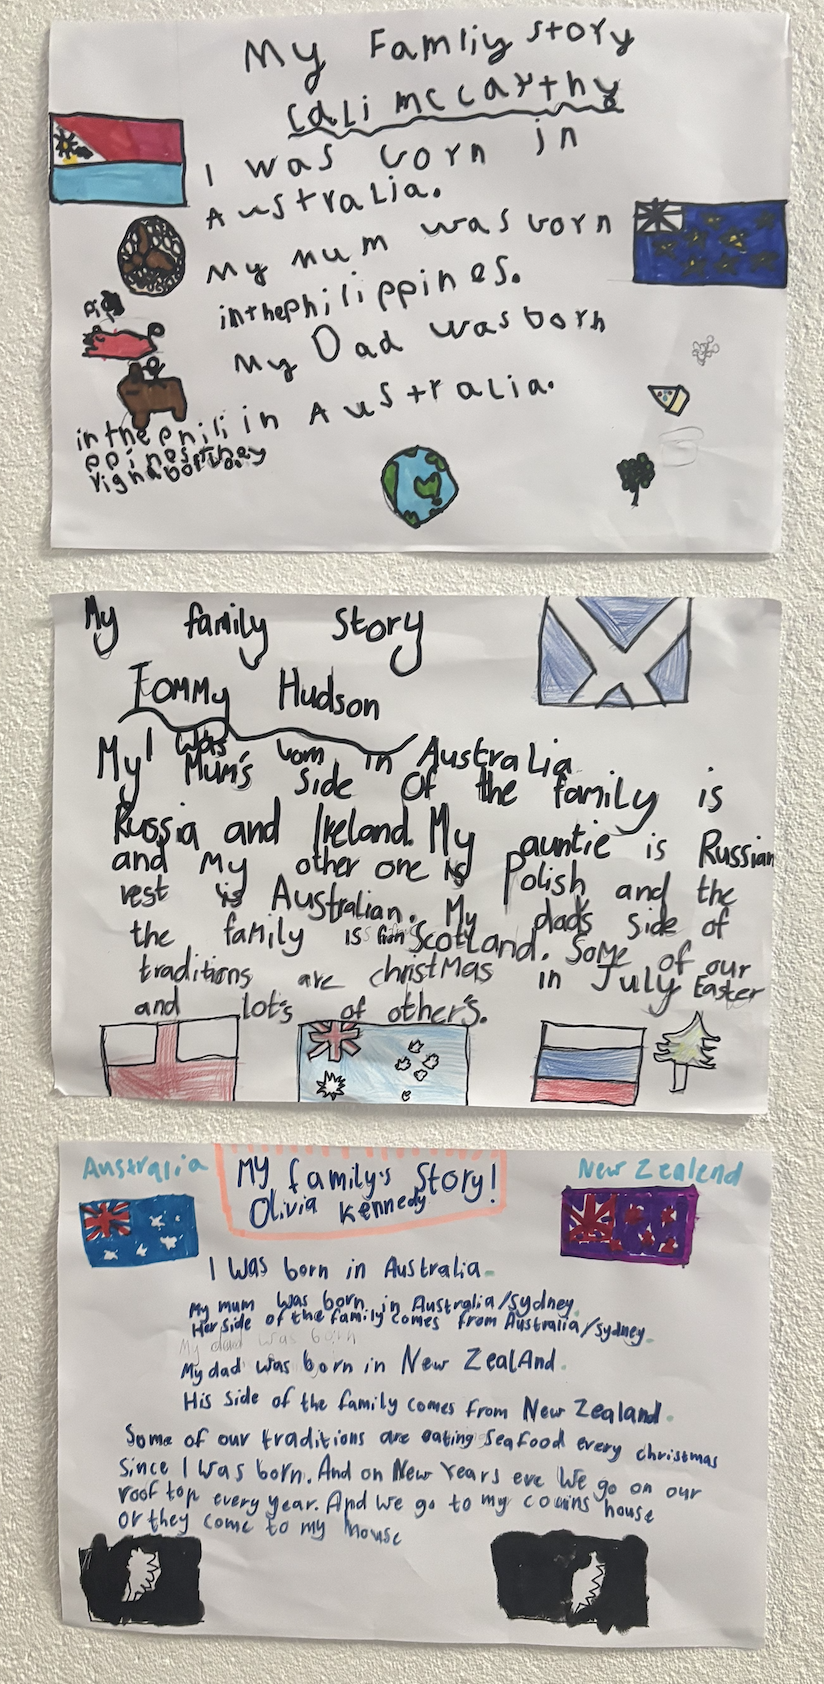 My Famliy story
cali mccarthy
I was born in
Australia.
My mum was born
inthephilippines.
pig
My Dad was born
in Australia.
inthephili
ppines they
My family Story
Tommy Hudson
I was born in Australia
My Mum's side of the family is
Russia and Ireland. My auntie is Russian
and My other one is Polish and the
rest is Australian. My dads side of
the family is from Scotland. Some of our
traditions are christmas in July Easter
and lot's of other's.
Australia
New Zealend
My family's Story!
Olivia Kennedy
I was born in Australia.
My mum was born in Australia/Sydney.
Her side of the family comes from Australia/Sydney.
My dad was born
My dad was born in New ZealAnd.
His side of the family comes from New Zealand.
Some of our traditions are eating Seafood every christmas
Since I was born. And on New Years eve We go on our
roof top every year. And we go to my couins house
or they come to my house